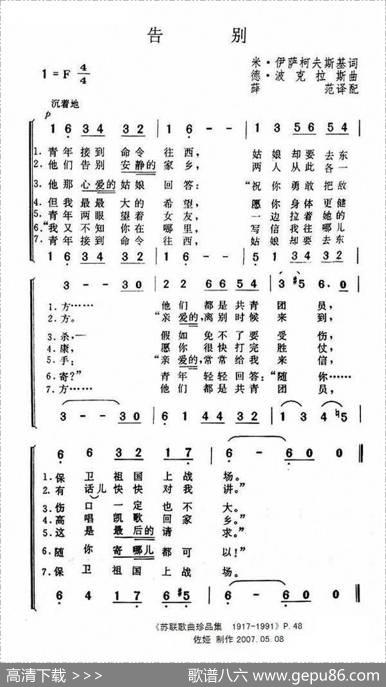 告 别
1=F 4/4
米·伊萨柯夫斯基词
德·波克拉斯曲
薛 范译配
沉着地
p
1 6 34 32 1 6 - - 1 3 56 54
1.青年接到命令往西, 姑娘却要去东
2.他们告别安静的家乡, 两人从此各一
3.他那心爱的姑娘回答: “祝你勇敢把敌
4.但我最最大的希望, 愿你身体更健
5.青年两眼望着女友, 一边拉着她的
6.“我又不知你在哪里, 写信我往哪儿
7.青年接到命令往西, 姑娘却要去东
1 6 34 32 1 6 - - 5 1 34 32
3 - - 30 1 6 34 32 5 3 #5 6. 0
1.方…… 他们都是共青团员,
2.方。 “亲爱的,离别时候来到,
3.杀,— 假如免不了要受伤,
4.康, 愿你很快打完胜仗,
5.手: “亲爱的,常常给我来信,
6.寄?” 青年轻轻回答:“随你……
7.方…… 他们都是共青团员,
3 - - 30 6 1 44 32 1 3 4 ♮5
6 6 32 17 6 - 60 0
1.保卫祖国上战场。
2.有话儿快快对我讲。”
3.伤口一定也不大。
4.高唱凯歌回家乡。”
5.这是最后的请求。”
6.随你寄哪儿都可以!”
7.保卫祖国上战场。
6 4 17 6 #5 6 - 60 0
《苏联歌曲珍品集 1917-1991》P.48
佐娅 制作 2007.05.08
高清下载 >>> 歌谱八六 www.gepu86.com